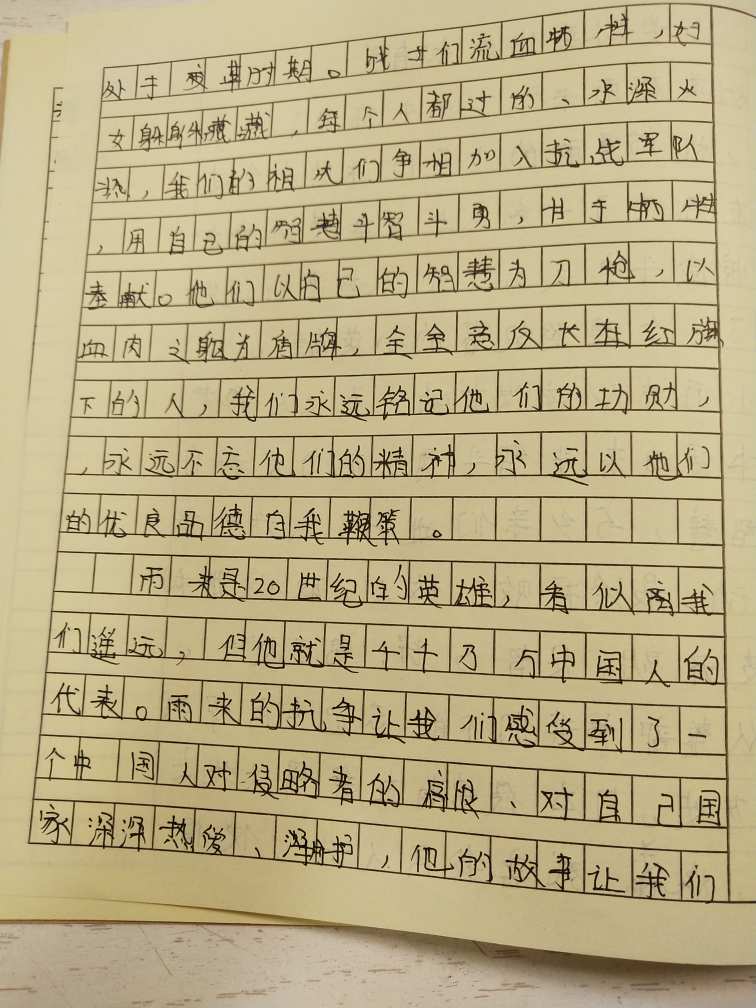 处于变革时期。战士们流血牺牲，妇
女躲躲藏藏，每个人都过的、水深火
热，我们的祖先们争相加入抗战军队
，用自己的智慧斗智斗勇，甘于牺牲
奉献。他们以自己的智慧为刀枪，以
血肉之躯为盾牌，全全意及长在红旗
下的人，我们永远铭记他们的功勋，
，永远不忘他们的精神，永远以他们
的优良品德自我鞭策。
雨来是20世纪的英雄，看似离我
们遥远，但他就是千千万万中国人的
代表。雨来的抗争让我们感受到了一
个中国人对侵略者的痛恨、对自己国
家深深热爱、拥护，他的故事让我们